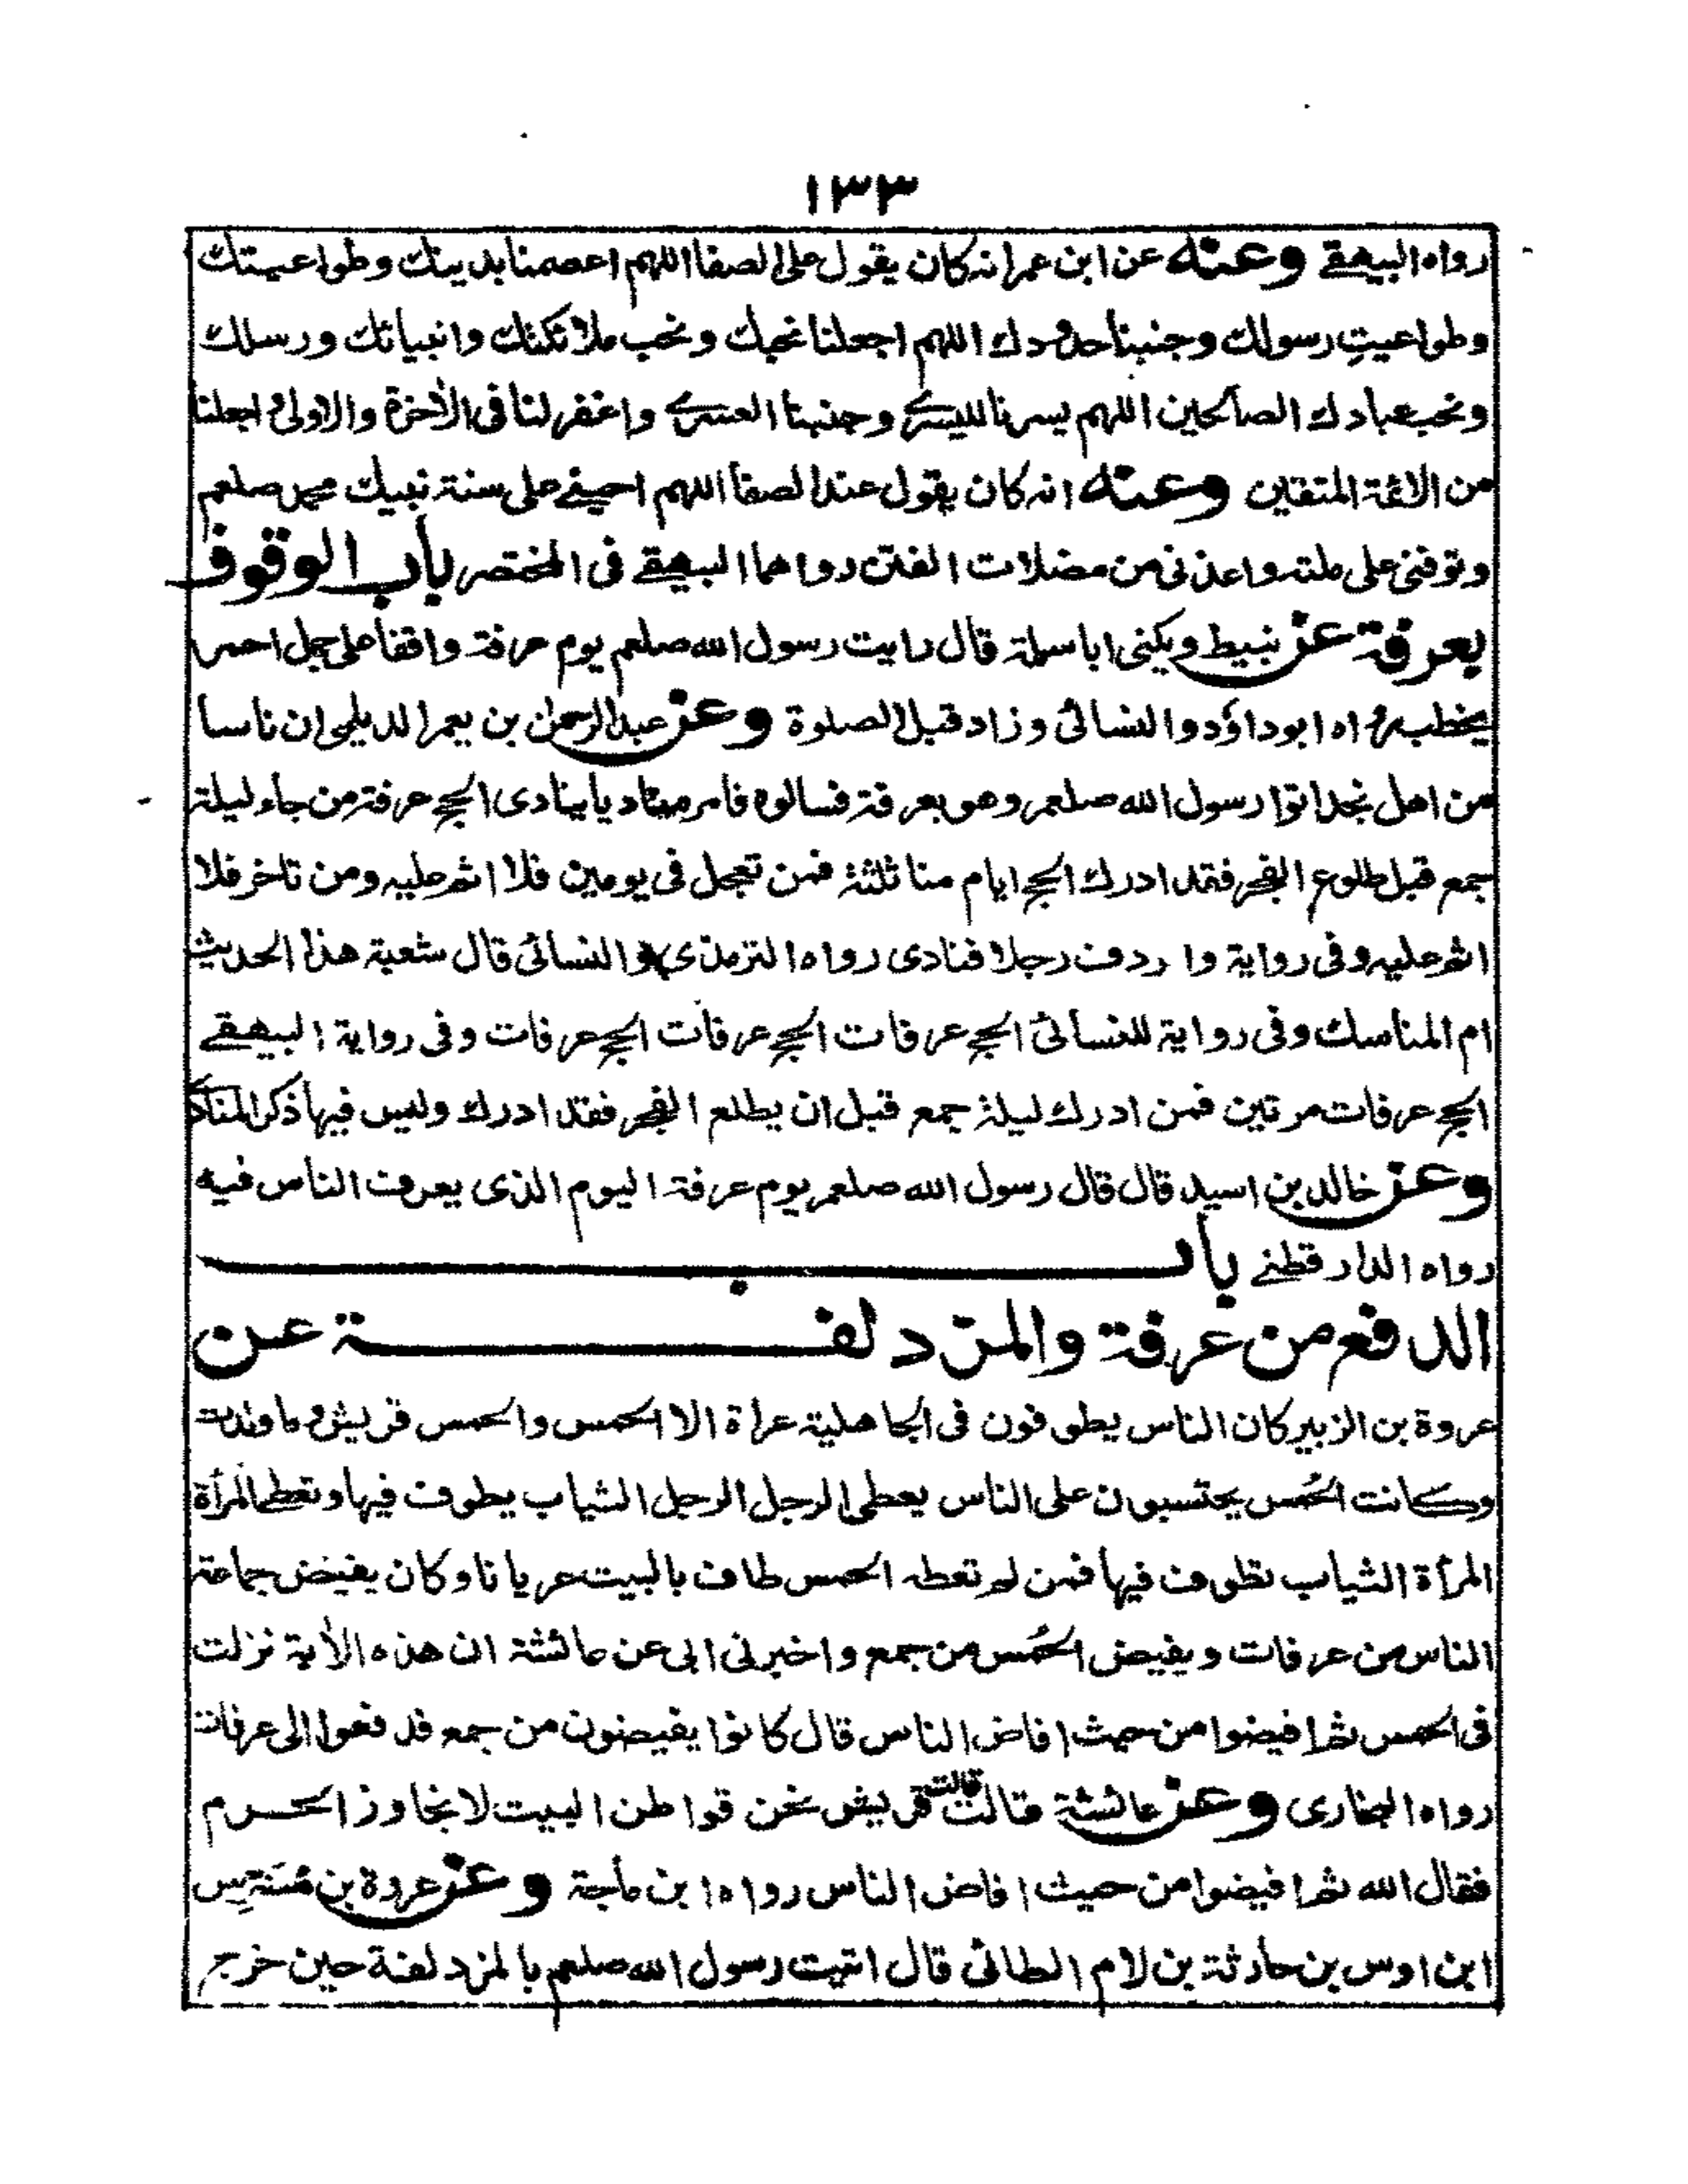 ١٣٣
رواه البيهقے وعنه عن ابن عمر انه كان يقول على الصفا اللهم اعصمنا بدينك وطواعيتك
وطواعيتِ رسولك وجنبنا حدودك اللهم اجعلنا نحبك ونحب ملائكتك وانبيائك ورسلك
ونحب عبادك الصالحين اللهم يسرنا لليسرے وجنبنا العسرے واغفر لنا فى الاٰخرة والاولى واجعلنا
من الائمة المتقين وعنه انه كان يقول عند الصفا اللهم احينے على سنة نبيك محمد صلعم
وتوفنى على ملته واعذنى من مضلات الفتن رواهما البيهقے فى المختصر باب الوقوف
بعرفة عن نبيط ويكنى ابا سلمة قال رايت رسول الله صلعم يوم عرفة واقفا على جمل احمر
يخطب رواه ابو داؤد والنسائى وزاد قبل الصلوة وعن عبد الرحمٰن بن يعمر الديلمى ان ناسا
من اهل نجد اتوا رسول الله صلعم وهو بعرفة فسالوه فامر مناديا ينادى الحج عرفة من جاء ليلة
جمع قبل طلوع الفجر فقد ادرك الحج ايام منا ثلثة فمن تعجل فى يومين فلا اثم عليه ومن تاخر فلا
اثم عليه وفى رواية واردف رجلا فنادى رواه الترمذى والنسائى قال شعبة هذا الحديث
ام المناسك وفى رواية للنسائى الحج عرفات الحج عرفات الحج عرفات وفى رواية البيهقے
الحج عرفات مرتين فمن ادرك ليلة جمع قبل ان يطلع الفجر فقد ادرك وليس فيها ذكر المناد
وعن خالد بن اسيد قال قال رسول الله صلعم يوم عرفة اليوم الذى يعرف الناس فيه
رواه الدار قطنے باب
الدفع من عرفة والمزدلفة عن
عروة بن الزبير كان الناس يطوفون فى الجاهلية عراة الا الحمس والحمس قريش وما ولدت
وكانت الحُمس يحتسبون على الناس يعطى الرجل الرجل الثياب يطوف فيها وتعطى المرأة
المرأة الثياب تطوف فيها فمن لم تعطه الحمس طاف بالبيت عريانا وكان يفيض جماعة
الناس من عرفات ويفيض الحُمس من جمع واخبرنى ابى عن عائشة ان هذه الاٰية نزلت
فى الحمس ثم افيضوا من حيث افاض الناس قال كانوا يفيضون من جمع فدفعوا الى عرفات
رواه البخارى وعن عائشة قالت قالت قريش نحن قواطن البيت لا نجاوز الحرم
فقال الله ثم افيضوا من حيث افاض الناس رواه ابن ماجة وعن عروة بن
ابن اوس بن حارثة بن لام الطائى قال اتيت رسول الله صلعم بالمزدلفة حين خرج